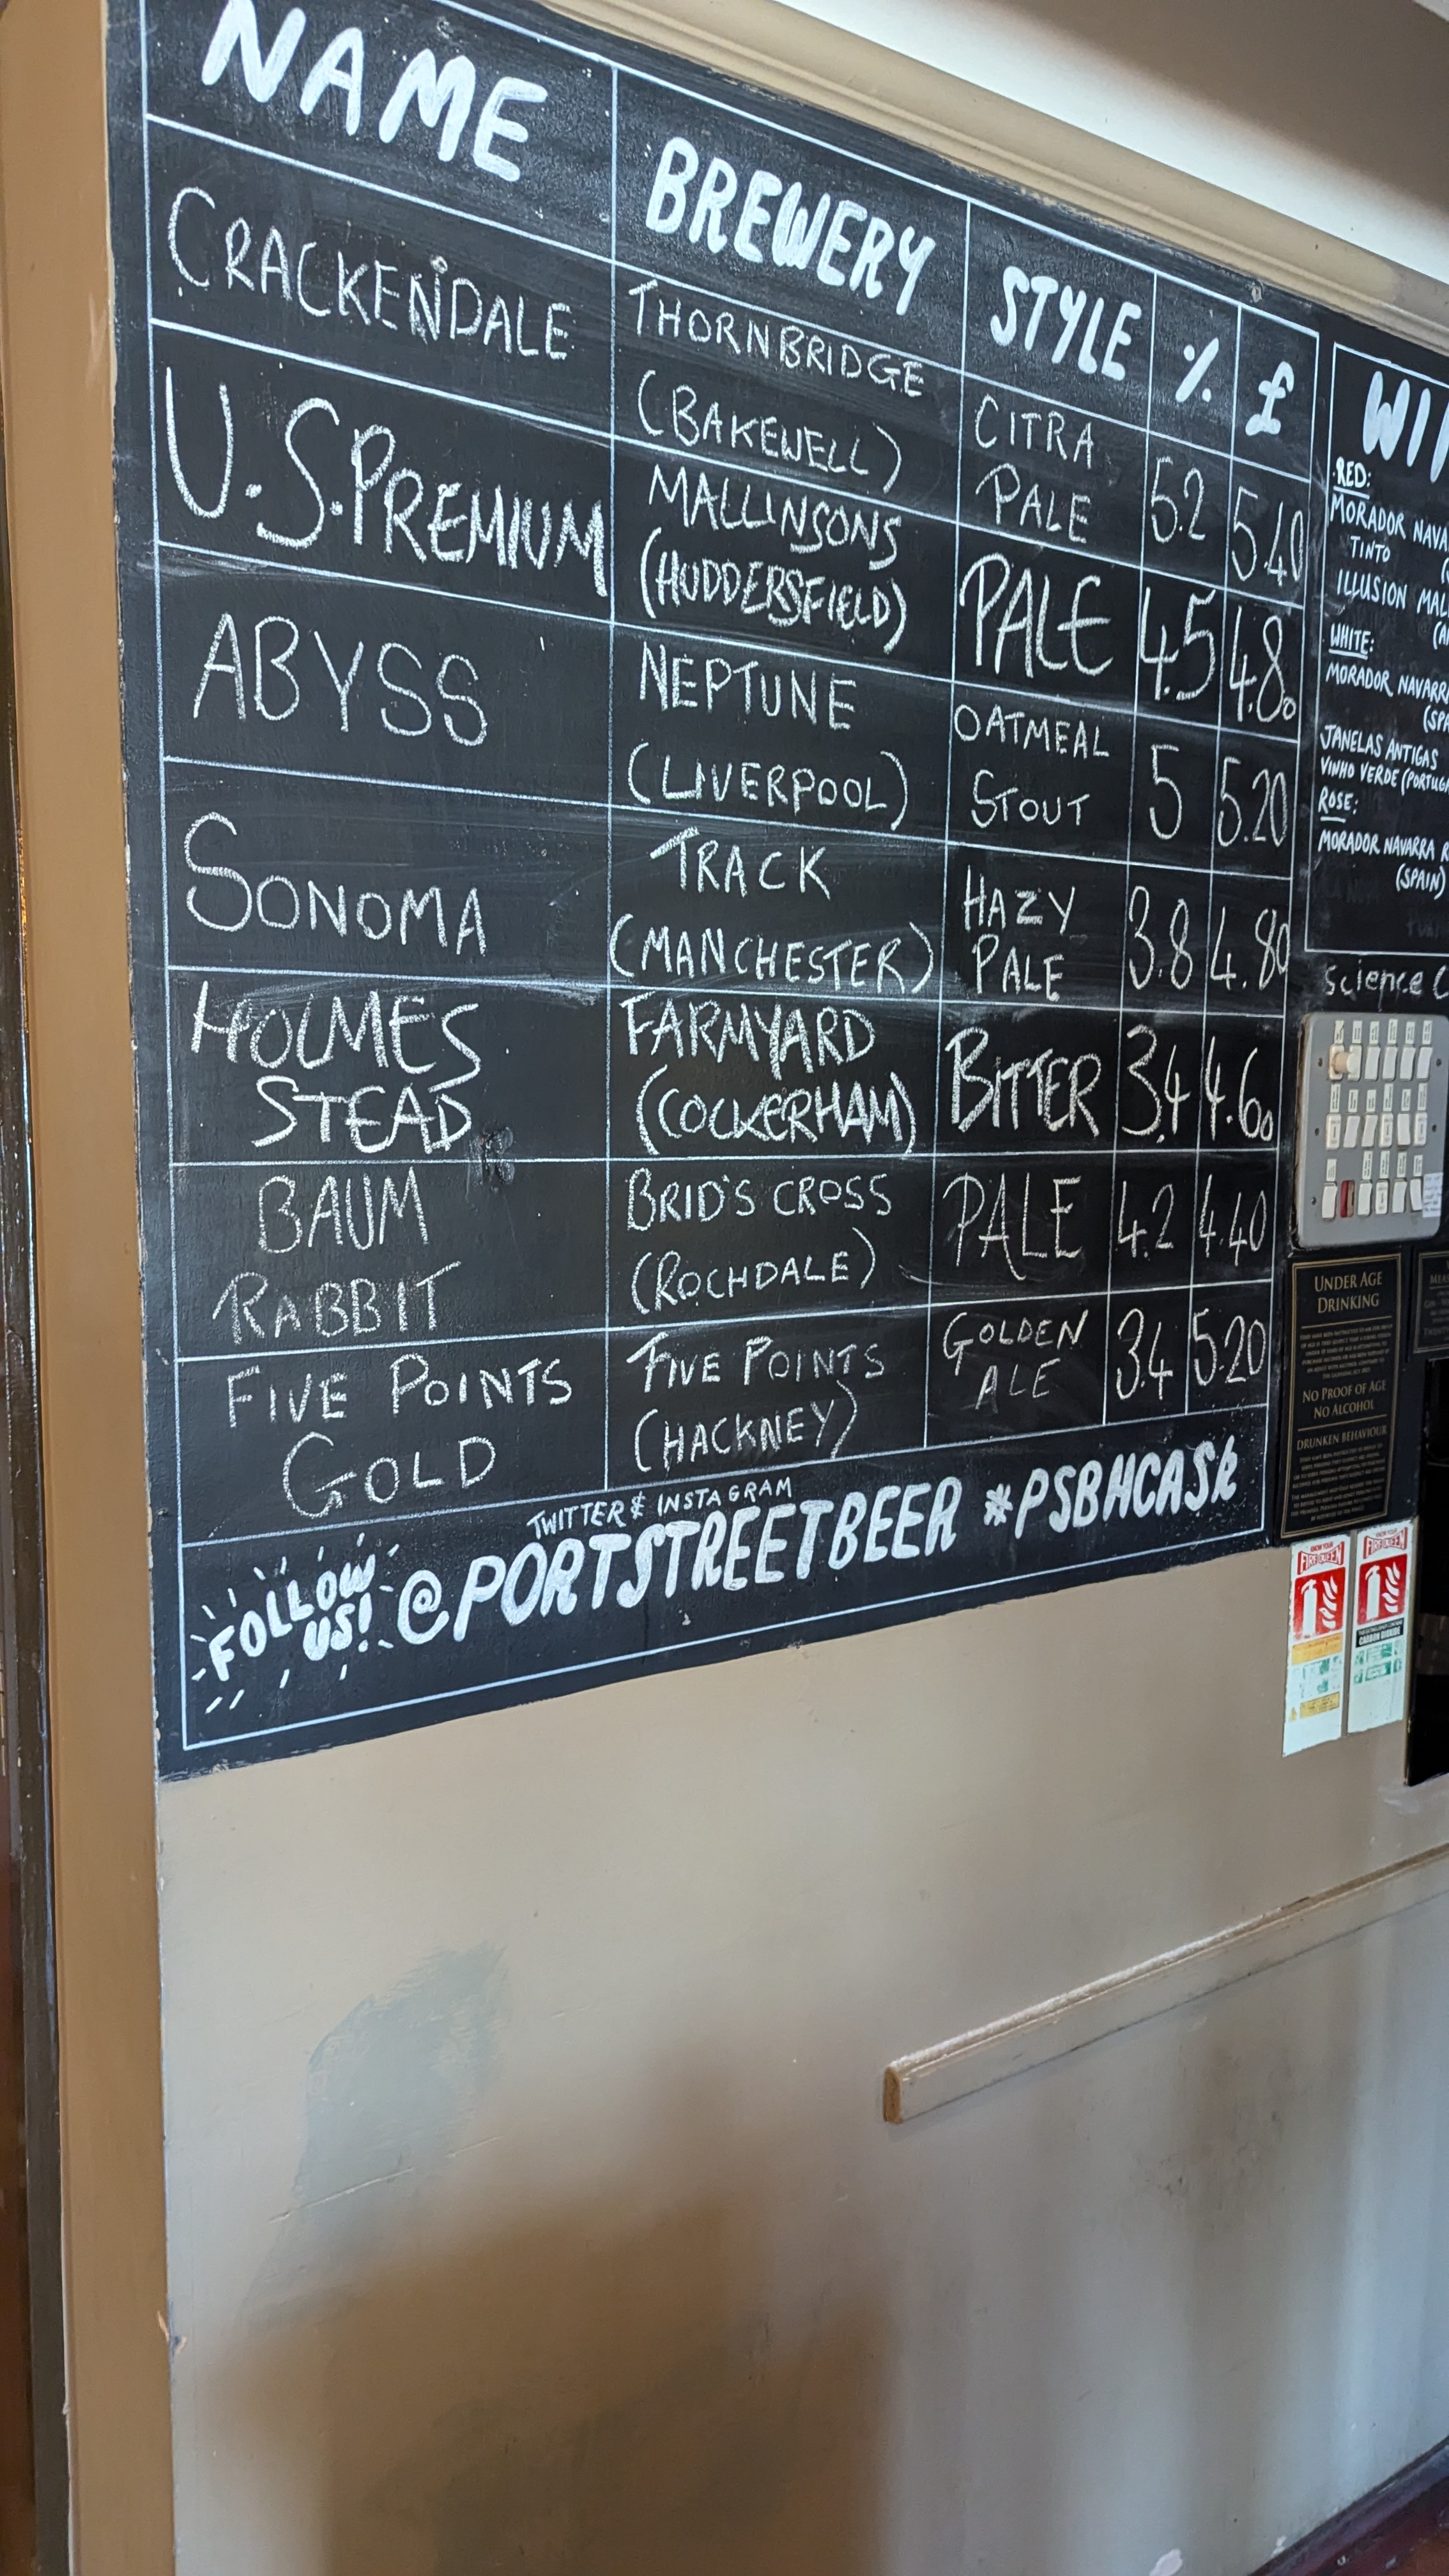 NAME BREWERY STYLE % £
CRACKENDALE THORNBRIDGE (BAKEWELL) CITRA PALE 5.2 5.40
U.S. PREMIUM MALLINSONS (HUDDERSFIELD) PALE 4.5 4.80
ABYSS NEPTUNE (LIVERPOOL) OATMEAL STOUT 5 5.20
SONOMA TRACK (MANCHESTER) HAZY PALE 3.8 4.80
HOLMES STEAD FARMYARD (COCKERHAM) BITTER 3.4 4.60
BAUM RABBIT BRID'S CROSS (ROCHDALE) PALE 4.2 4.40
FIVE POINTS GOLD FIVE POINTS (HACKNEY) GOLDEN ALE 3.4 5.20
TWITTER & INSTAGRAM
FOLLOW US! @PORTSTREETBEER #PSBHCASK
WI
RED:
MORADOR NAVA
TINTO
ILLUSION MAL
WHITE:
MORADOR NAVARR
(SPA
JANELAS ANTIGAS
VINHO VERDE (PORTUGA
ROSE:
MORADOR NAVARRA R
(SPAIN)
Science C
UNDER AGE
DRINKING
NO PROOF OF AGE
NO ALCOHOL
DRUNKEN BEHAVIOUR
FIRE QUEEN
FIRE QUEEN
CARBON DIOXIDE